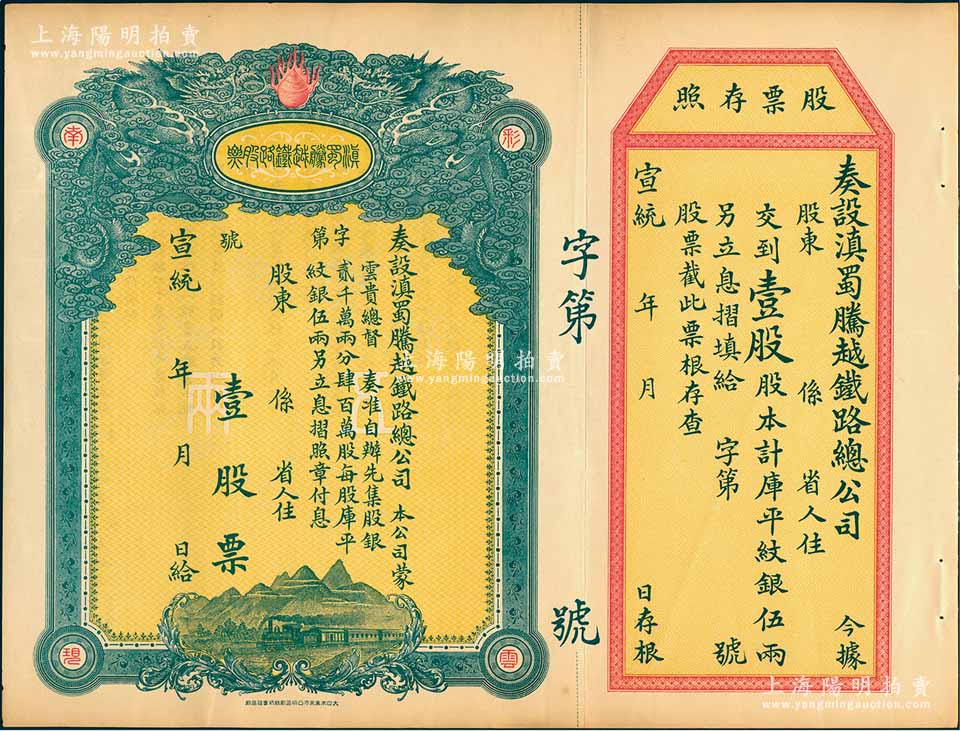 上海陽明拍賣
www.yangmingauction.com
股票存照
奏設滇蜀騰越鐵路總公司 今據
股東 係 省人住
交到壹股股本計庫平紋銀伍兩
另立息摺填給 字第 號
股票截此票根存查
宣統 年 月 日存根
字第 號
滇蜀騰越鐵路股票
彩
南
雲
現
奏設滇蜀騰越鐵路總公司 本公司蒙
雲貴總督 奏准自辦先集股銀
貳千萬兩分肆百萬股每股庫平
紋銀伍兩另立息摺照章付息
字第 號
股東 係 省人住
壹股票
宣統 年 月 日給
伍
兩
上海陽明拍賣
www.yangmingauction.com
上海陽明拍賣
www.yangmingauction.com